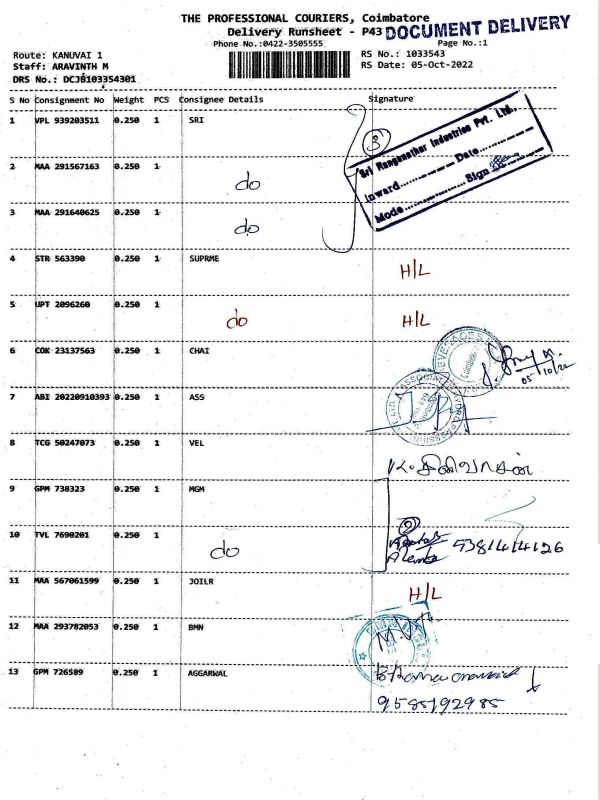 THE PROFESSIONAL COURIERS, Coimbatore
Delivery Runsheet - P43 DOCUMENT DELIVERY
Phone No.:0422-3505555 Page No.:1
Route: KANUVAI 1 RS No.: 1033543
Staff: ARAVINTH M RS Date: 05-Oct-2022
DRS No.: DCJB103354301
S No Consignment No Weight PCS Consignee Details Signature
1 VPL 939203511 0.250 1 SRI
3
Sri Ranganathar Industries Pvt. Ltd.
Inward............Date............
Mode............Sign
2 MAA 291567163 0.250 1 do
3 MAA 291640625 0.250 1 do
4 STR 563390 0.250 1 SUPRME H/L
5 UPT 2096260 0.250 1 do H/L
6 COK 23137563 0.250 1 CHAI
05/10/22
7 ABI 20220910393 0.250 1 ASS
8 TCG 50247073 0.250 1 VEL
9 GPM 738323 0.250 1 MGM
10 TVL 7690201 0.250 1 do 9381414126
11 MAA 567061599 0.250 1 JOILR H/L
12 MAA 293782053 0.250 1 BMN
13 GPM 726589 0.250 1 AGGARWAL
9585192985